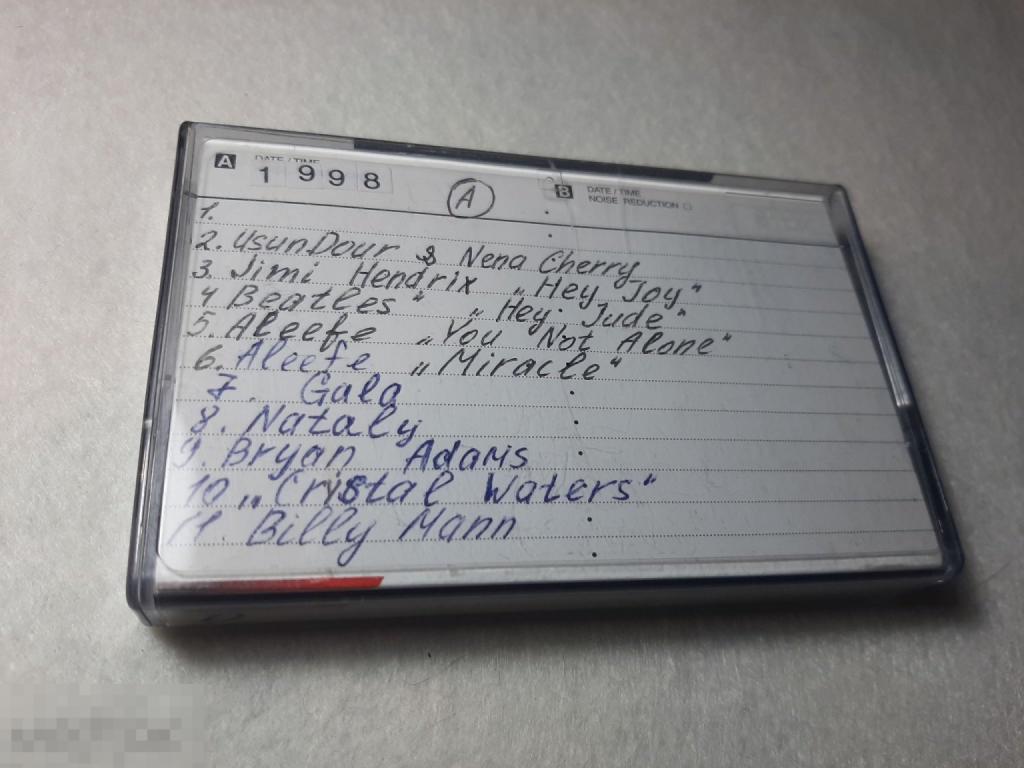 A DATE / TIME
1 9 9 8
A
B DATE / TIME
NOISE REDUCTION
1.
2. UsunDour & Nena Cherry
3. Jimi Hendrix „Hey Joy"
4 Beatles " „Hey Jude"
5. Aleefe „You Not Alone"
6. Aleefe „Miracle"
7. Gala
8. Nataly
9. Bryan Adams
10 „Cristal Waters"
11. Billy Mann